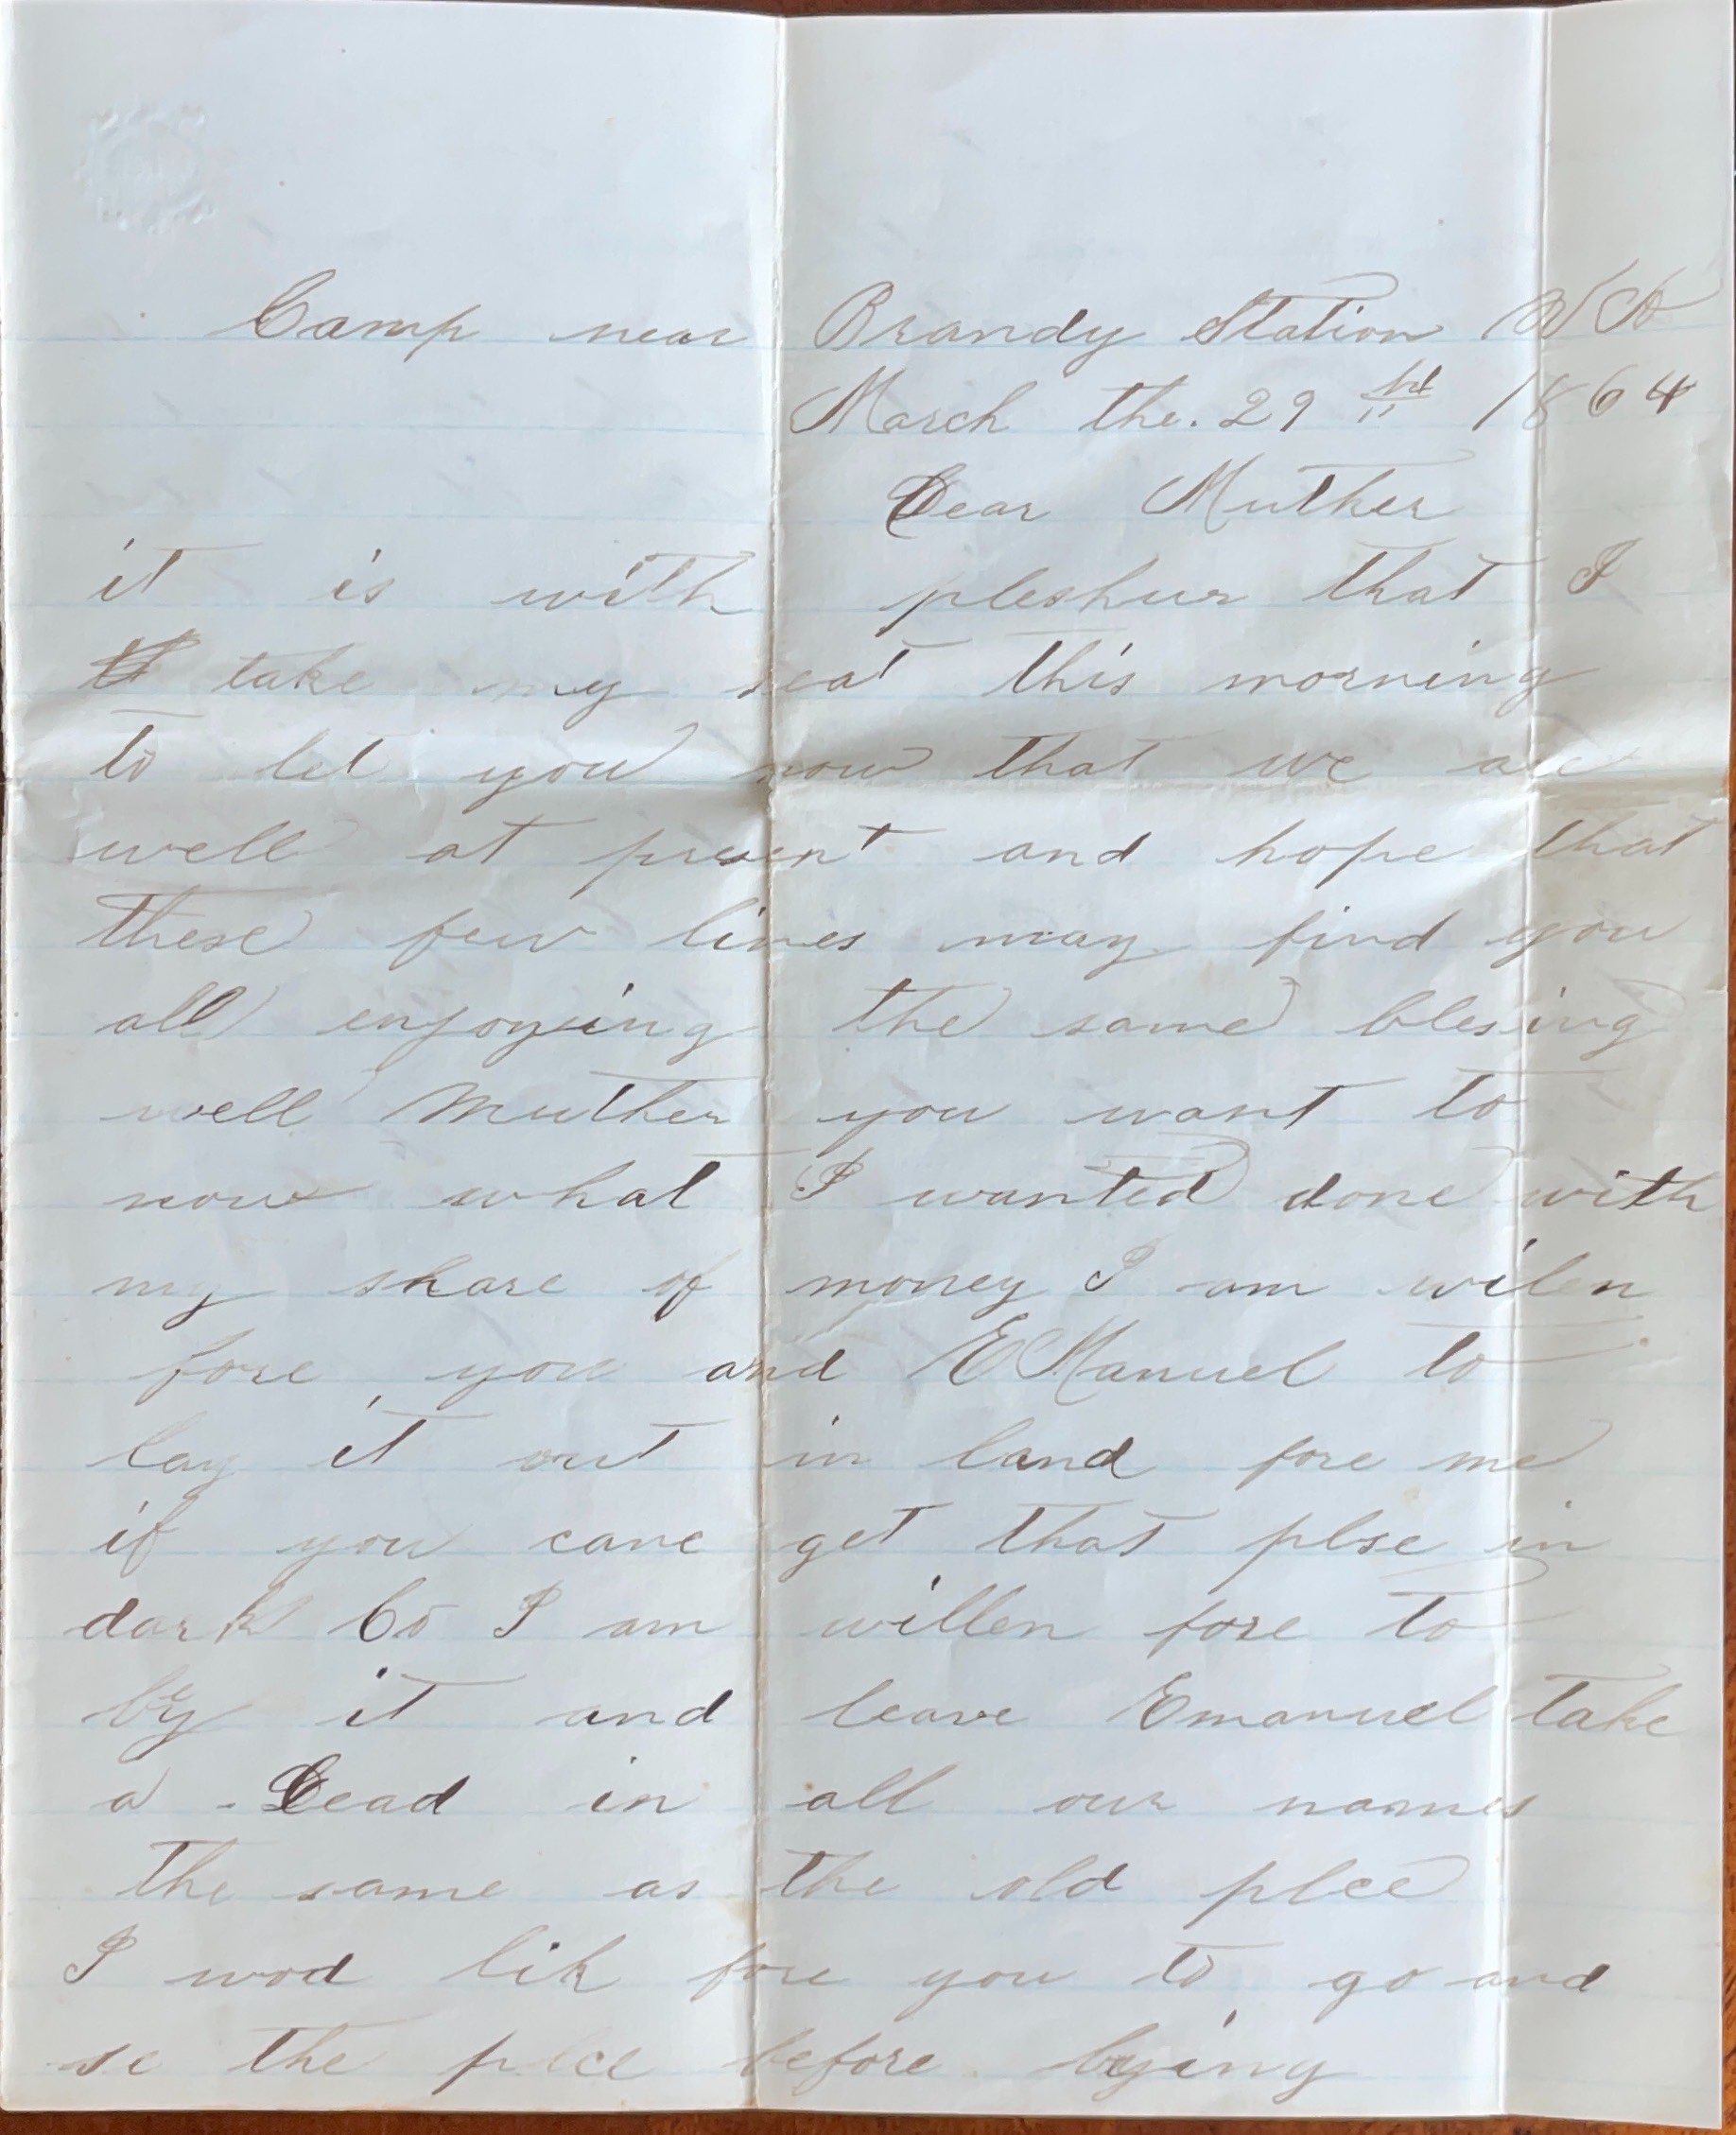 Camp near Brandy Station VA
March the. 29 th 1864
Dear Muther
it is with pleshur that I
take my seat this morning
to let you now that we are
well at present and hope that
these few lines may find you
all enjoying the same blesing
well Muther you want to
now what I wanted done with
my share of money I am wilen
fore you and EManuel to
lay it out in land fore me
if you cane get that plse in
dark Co I am willen fore to
by it and leave Emanuel take
a Dead in all our names
the same as the old plce
I wod lik fore you to go and
se the plce before bying